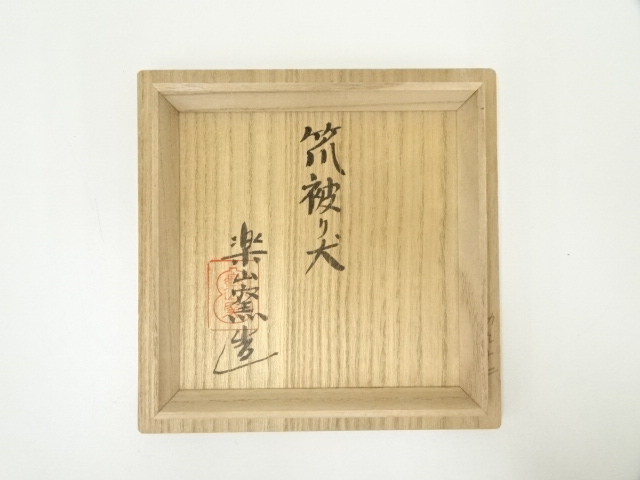 笊被り犬
楽山窯造